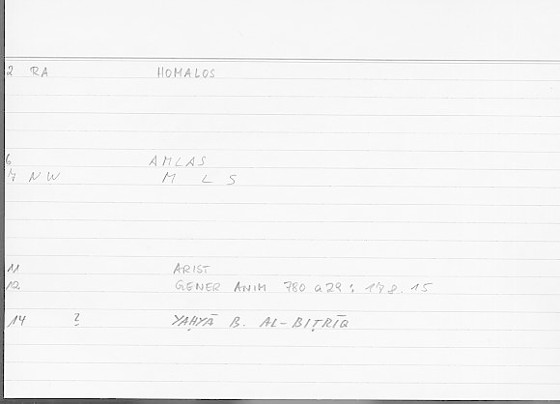 2 RA HOMALOS
6 AMLAS
7 NW M L S
11 ARIST
12 GENER ANIM 780 a29 : 178.15
14 ? YAḤYĀ B. AL-BIṬRĪQ